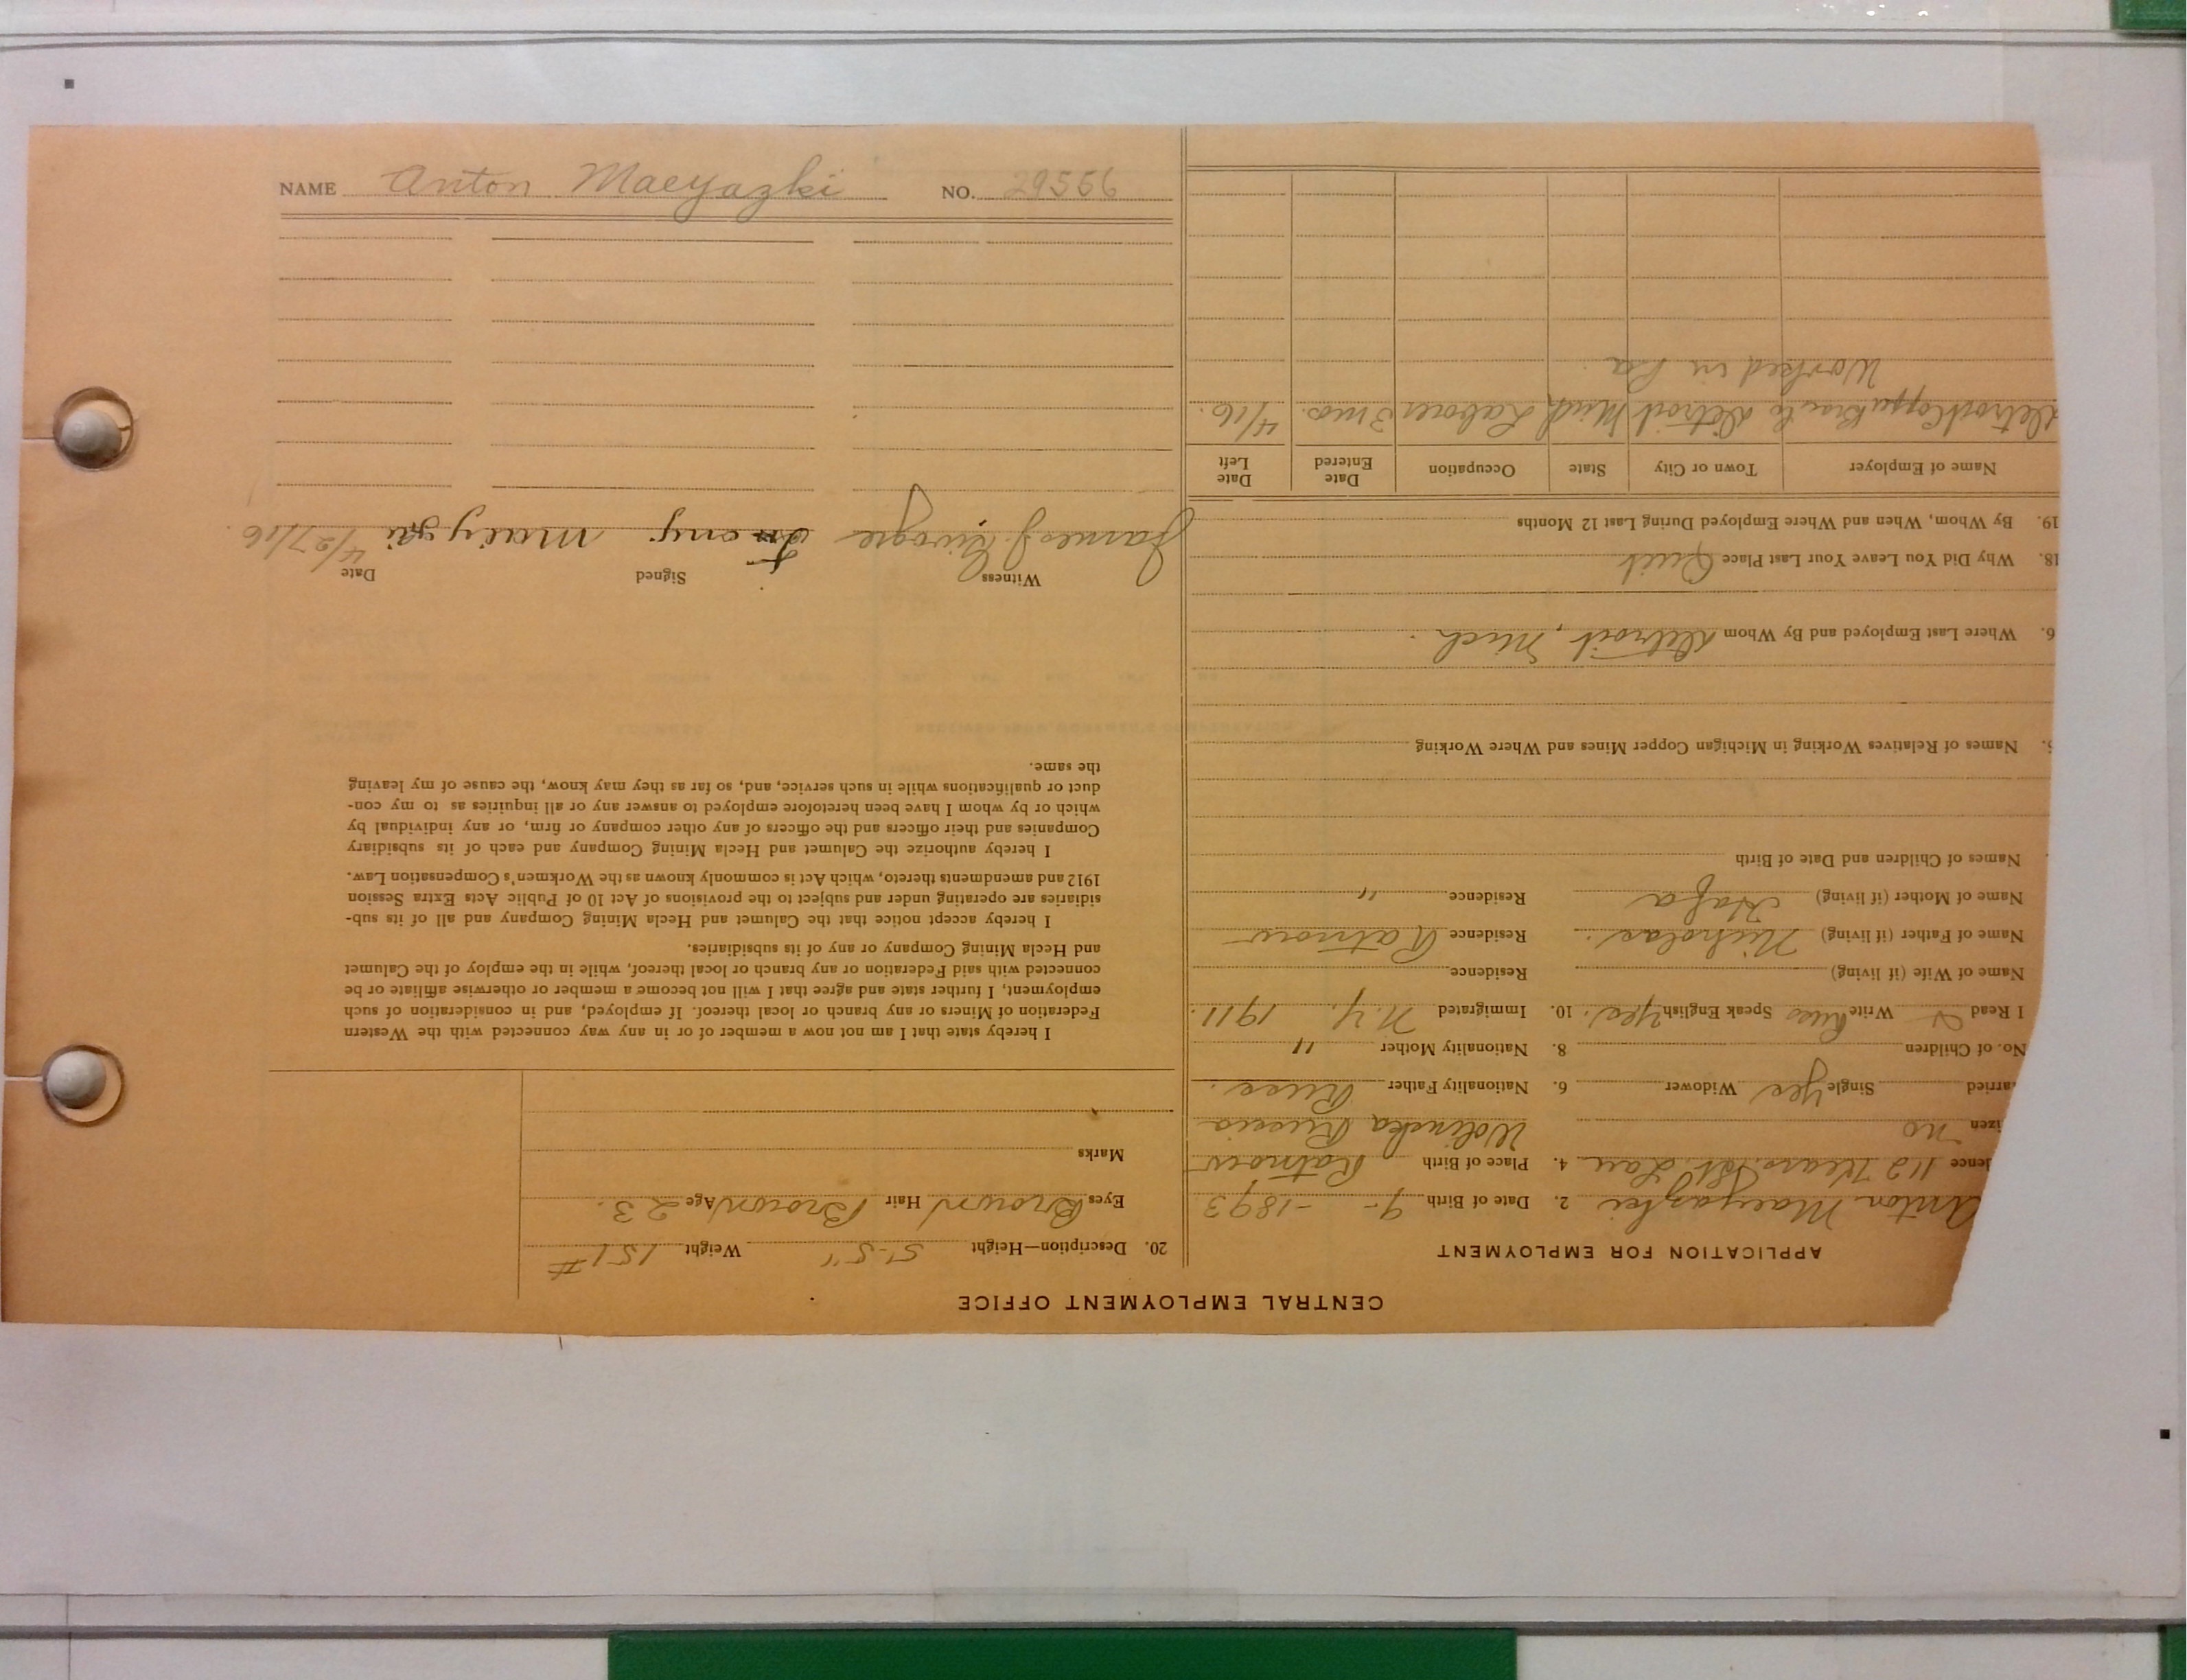 NAME Anton Maeyazki NO. 29556
CENTRAL EMPLOYMENT OFFICE
APPLICATION FOR EMPLOYMENT
Anton Maeyazki 2. Date of Birth 9- -1893
dence 112 St. Lau 4. Place of Birth Ratnow
izen no Wolinska Russia
arried Single Yes Widower 6. Nationality Father Russ.
No. of Children 8. Nationality Mother "
I Read & Write Russ Speak English Yes. 10. Immigrated N.Y. 1911.
Name of Wife (if living) Residence
Name of Father (if living) Nicholas. Residence Ratnow
Name of Mother (if living) Residence "
Names of Children and Date of Birth
Names of Relatives Working in Michigan Copper Mines and Where Working
6. Where Last Employed and By Whom Detroit, Mich.
18. Why Did You Leave Your Last Place Quit
19. By Whom, When and Where Employed During Last 12 Months
Name of Employer Town or City State Occupation Date Entered Date Left
Detroit Copper Detroit Mich Laborer 3 mos. 4/16.
Worked in Pa.
20. Description—Height 5-5" Weight 151#
Eyes Brown Hair Brown Age 23.
Marks
I hereby state that I am not now a member of or in any way connected with the Western
Federation of Miners or any branch or local thereof. If employed, and in consideration of such
employment, I further state and agree that I will not become a member or otherwise affiliate or be
connected with said Federation or any branch or local thereof, while in the employ of the Calumet
and Hecla Mining Company or any of its subsidiaries.
I hereby accept notice that the Calumet and Hecla Mining Company and all of its sub-
sidiaries are operating under and subject to the provisions of Act 10 of Public Acts Extra Session
1912 and amendments thereto, which Act is commonly known as the Workmen's Compensation Law.
I hereby authorize the Calumet and Hecla Mining Company and each of its subsidiary
Companies and their officers and the officers of any other company or firm, or any individual by
which or by whom I have been heretofore employed to answer any or all inquiries as to my con-
duct or qualifications while in such service, and, so far as they may know, the cause of my leaving
the same.
Witness Signed Date
James J. 4/27/16.